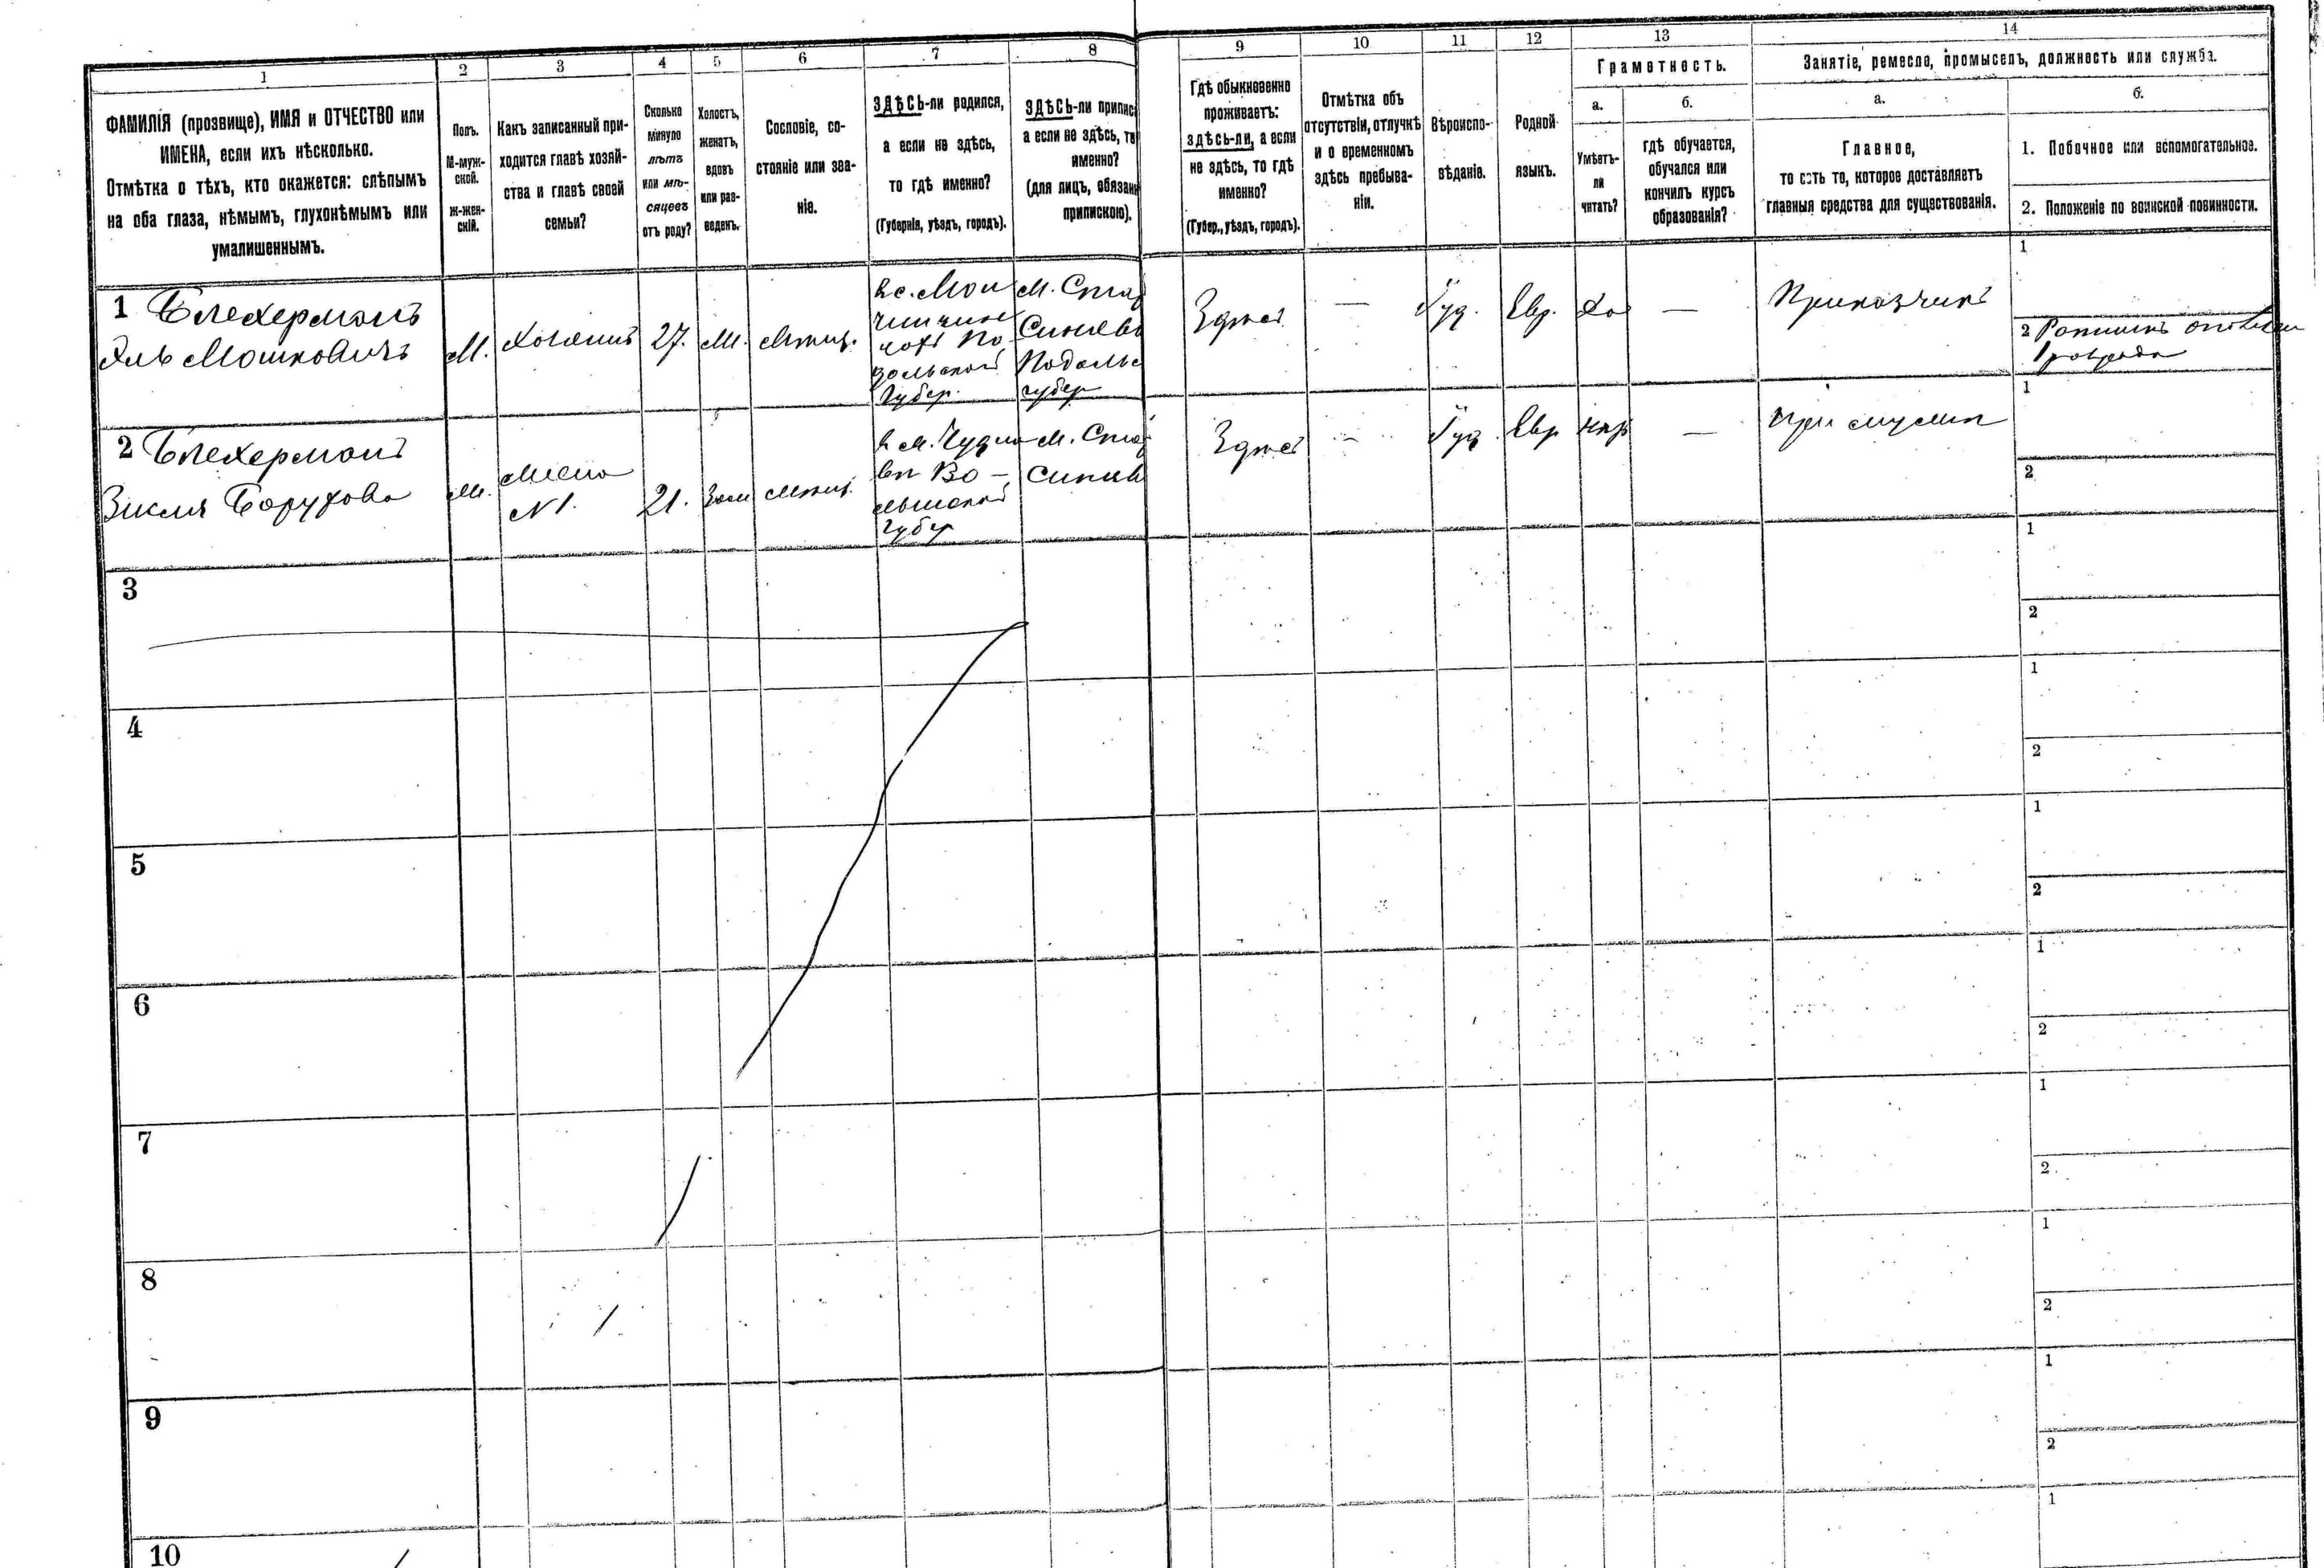 1
2
3
4
5
6
7
8
9
10
11
12
13
14
ФАМИЛІЯ (прозвище), ИМЯ и ОТЧЕСТВО или
ИМЕНА, если ихъ нѣсколько.
Отмѣтка о тѣхъ, кто окажется: слѣпымъ
на оба глаза, нѣмымъ, глухонѣмымъ или
умалишеннымъ.
Полъ.
М-муж-
ской.
Ж-жен-
скій.
Какъ записанный при-
ходится главѣ хозяй-
ства и главѣ своей
семьи?
Сколько
минуло
лѣтъ
или мѣ-
сяцевъ
отъ роду?
Холостъ,
женатъ,
вдовъ
или раз-
веденъ.
Сословіе, со-
стояніе или зва-
ніе.
ЗДѢСЬ-ли родился,
а если не здѣсь,
то гдѣ именно?
(Губернія, уѣздъ, городъ).
ЗДѢСЬ-ли припис
а если не здѣсь, то
именно?
(для лицъ, обязан
припискою).
Гдѣ обыкновенно
проживаетъ:
здѣсь-ли, а если
не здѣсь, то гдѣ
именно?
(Губер., уѣздъ, городъ).
Отмѣтка объ
отсутствіи, отлучкѣ
и о временномъ
здѣсь пребыва-
ніи.
Вѣроиспо-
вѣданіе.
Родной
языкъ.
Грамотность.
а.
Умѣетъ-
ли
читать?
б.
гдѣ обучается,
обучался или
кончилъ курсъ
образованія?
Занятіе, ремесло, промыселъ, должность или служба.
а.
Главное,
то есть то, которое доставляетъ
главныя средства для существованія.
б.
1. Побочное или вспомогательное.
2. Положеніе по воинской повинности.
1 Блехерманъ
Эль Мошковичъ
М.
Хозяинъ
27.
М.
Мѣщ.
По-
дольской
Губер.
М. Стар
Синяв
Подольс
губер
Здѣсь
—
Іуд.
Евр.
Да
—
Приказчикъ
1
2 Ратникъ ополчен
1 разряда
2 Блехерманъ
Борухова
М.
Жена
№ 1.
21.
Зам
Мѣщ.
в м. Чудно
вѣ Во-
лынской
Губер
М. Стар
Синяв
Здѣсь
—
Іуд.
Евр
нѣтъ
—
При мужѣ
1
2
3
1
2
4
1
2
5
1
2
6
1
2
7
1
2
8
1
2
9
1
2
10
1